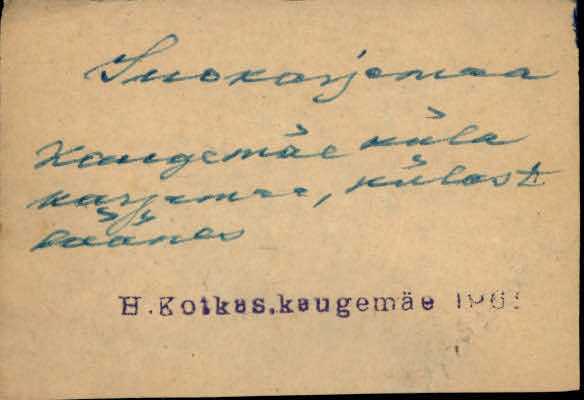 Suokarjamaa
Kaugemäe küla
karjamaa, külast
läänes
H.Kotkas.kaugemäe